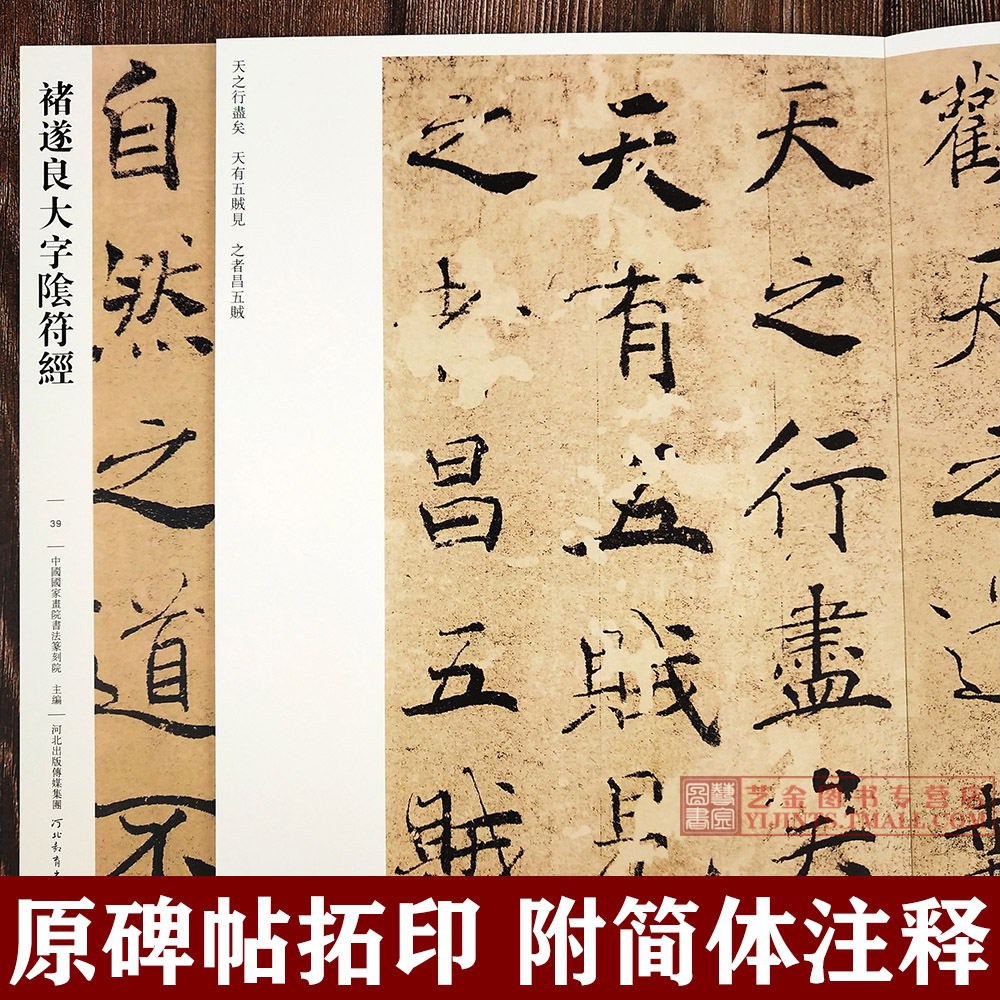 褚遂良大字陰符經
39
中國國家畫院書法篆刻院 主编
河北出版傳媒集團
河北教育
自然之道不
天之行盡矣 天有五賊見 之者昌五賊
觀天之道
天之行盡矣
天有五賊見
之者昌五賊
艺金图书专营店
YIJINTS.TMALL.COM
原碑帖拓印 附简体注释